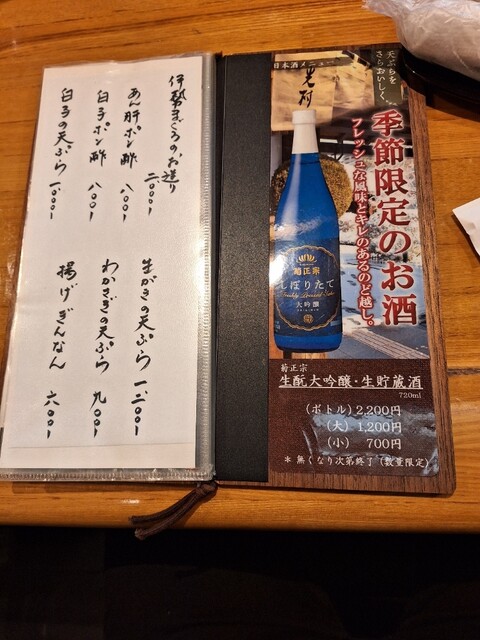 伊勢まぐろのお造り 二、〇〇〇
あん肝ポン酢 八〇〇
白子ポン酢 八〇〇
白子の天ぷら 一、〇〇〇
生がきの天ぷら 一、二〇〇
わかさぎの天ぷら 九〇〇
揚げぎんなん 六〇〇
日本酒メニュー
天ぷらを
さらおいしく
季節限定のお酒
フレッシュな風味とキレのあるのど越し。
菊正宗
しぼりたて
大吟醸
菊正宗
生酛大吟醸・生貯蔵酒
720ml
(ボトル) 2,200円
(大) 1,200円
(小) 700円
＊無くなり次第終了 (数量限定)